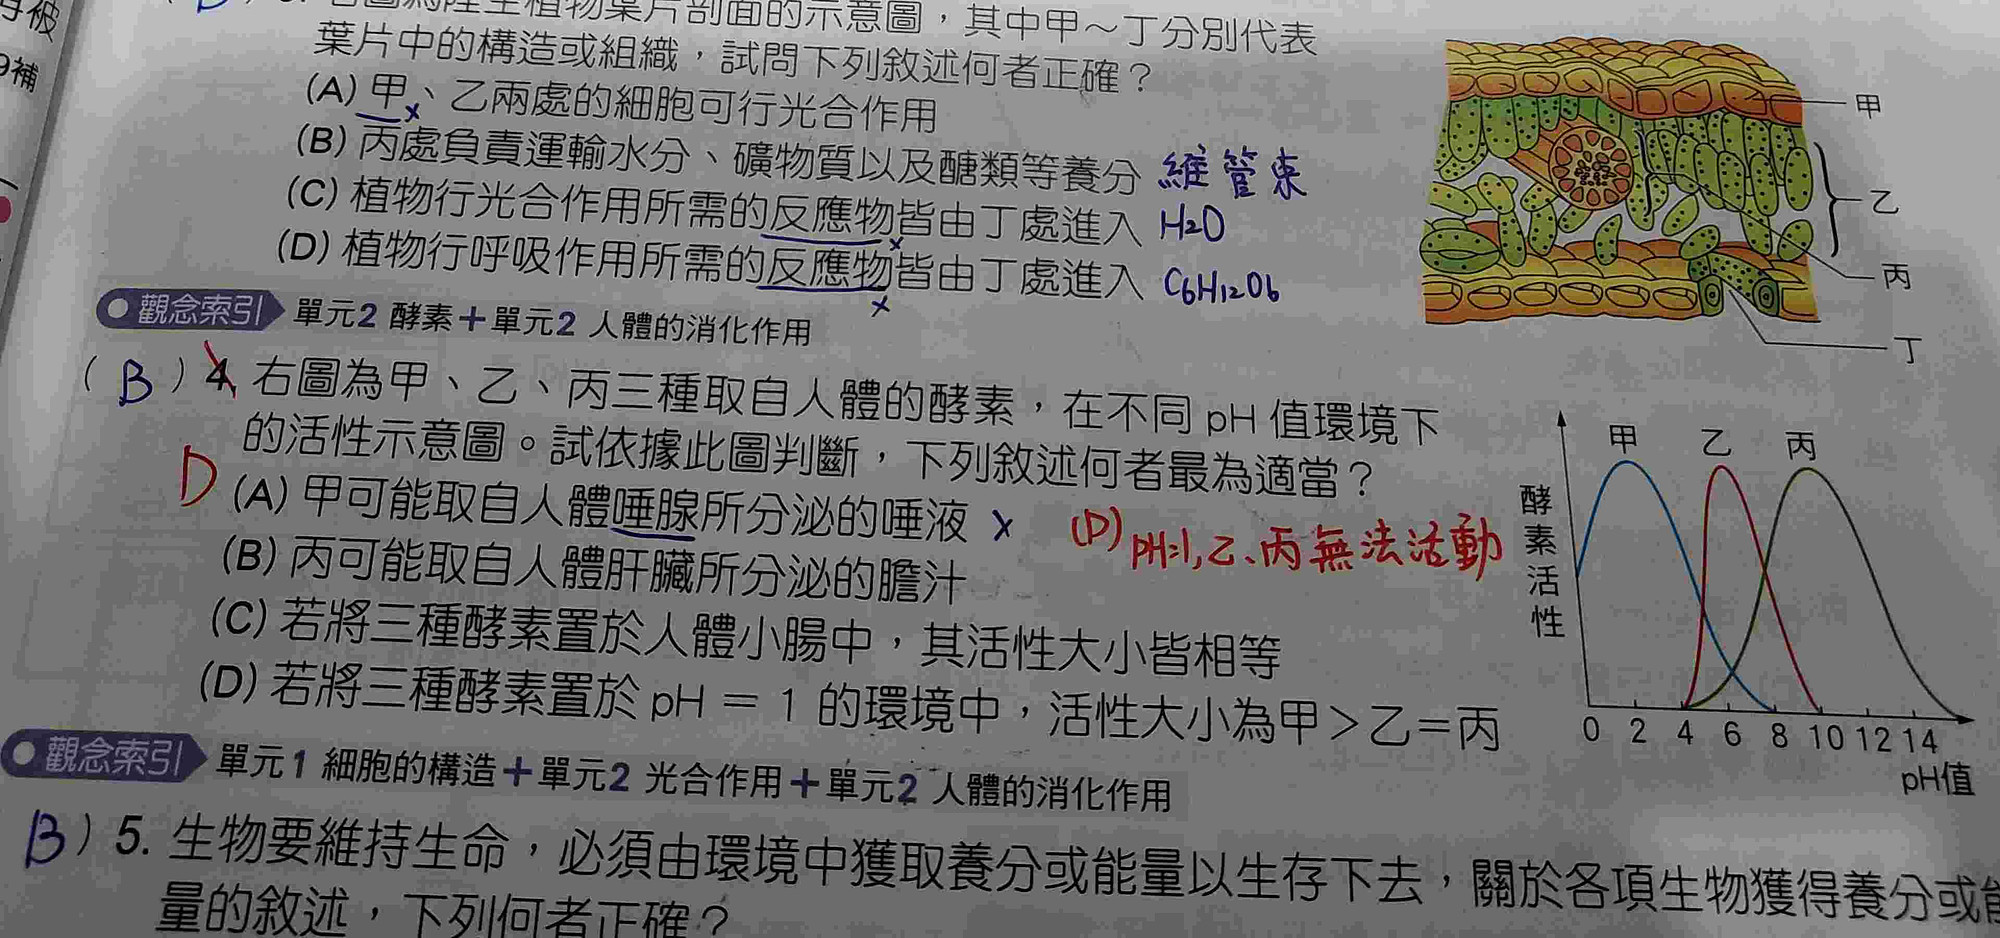 再被
9補
右圖為陸生植物葉片剖面的示意圖，其中甲～丁分別代表
葉片中的構造或組織，試問下列敘述何者正確？
(A) 甲、乙兩處的細胞可行光合作用
(B) 丙處負責運輸水分、礦物質以及醣類等養分 維管束
(C) 植物行光合作用所需的反應物皆由丁處進入 H2O
(D) 植物行呼吸作用所需的反應物皆由丁處進入 C6H12O6
甲
乙
丙
丁
觀念索引 單元2 酵素＋單元2 人體的消化作用
( B ) 4. 右圖為甲、乙、丙三種取自人體的酵素，在不同 pH 值環境下
的活性示意圖。試依據此圖判斷，下列敘述何者最為適當？
D
(A) 甲可能取自人體唾腺所分泌的唾液 x
(D) PH=1, 乙、丙無法活動
(B) 丙可能取自人體肝臟所分泌的膽汁
(C) 若將三種酵素置於人體小腸中，其活性大小皆相等
(D) 若將三種酵素置於 pH = 1 的環境中，活性大小為甲＞乙＝丙
甲 乙 丙
酵素活性
0 2 4 6 8 10 12 14
pH值
觀念索引 單元1 細胞的構造＋單元2 光合作用＋單元2 人體的消化作用
B ) 5. 生物要維持生命，必須由環境中獲取養分或能量以生存下去，關於各項生物獲得養分或能
量的敘述，下列何者正確？